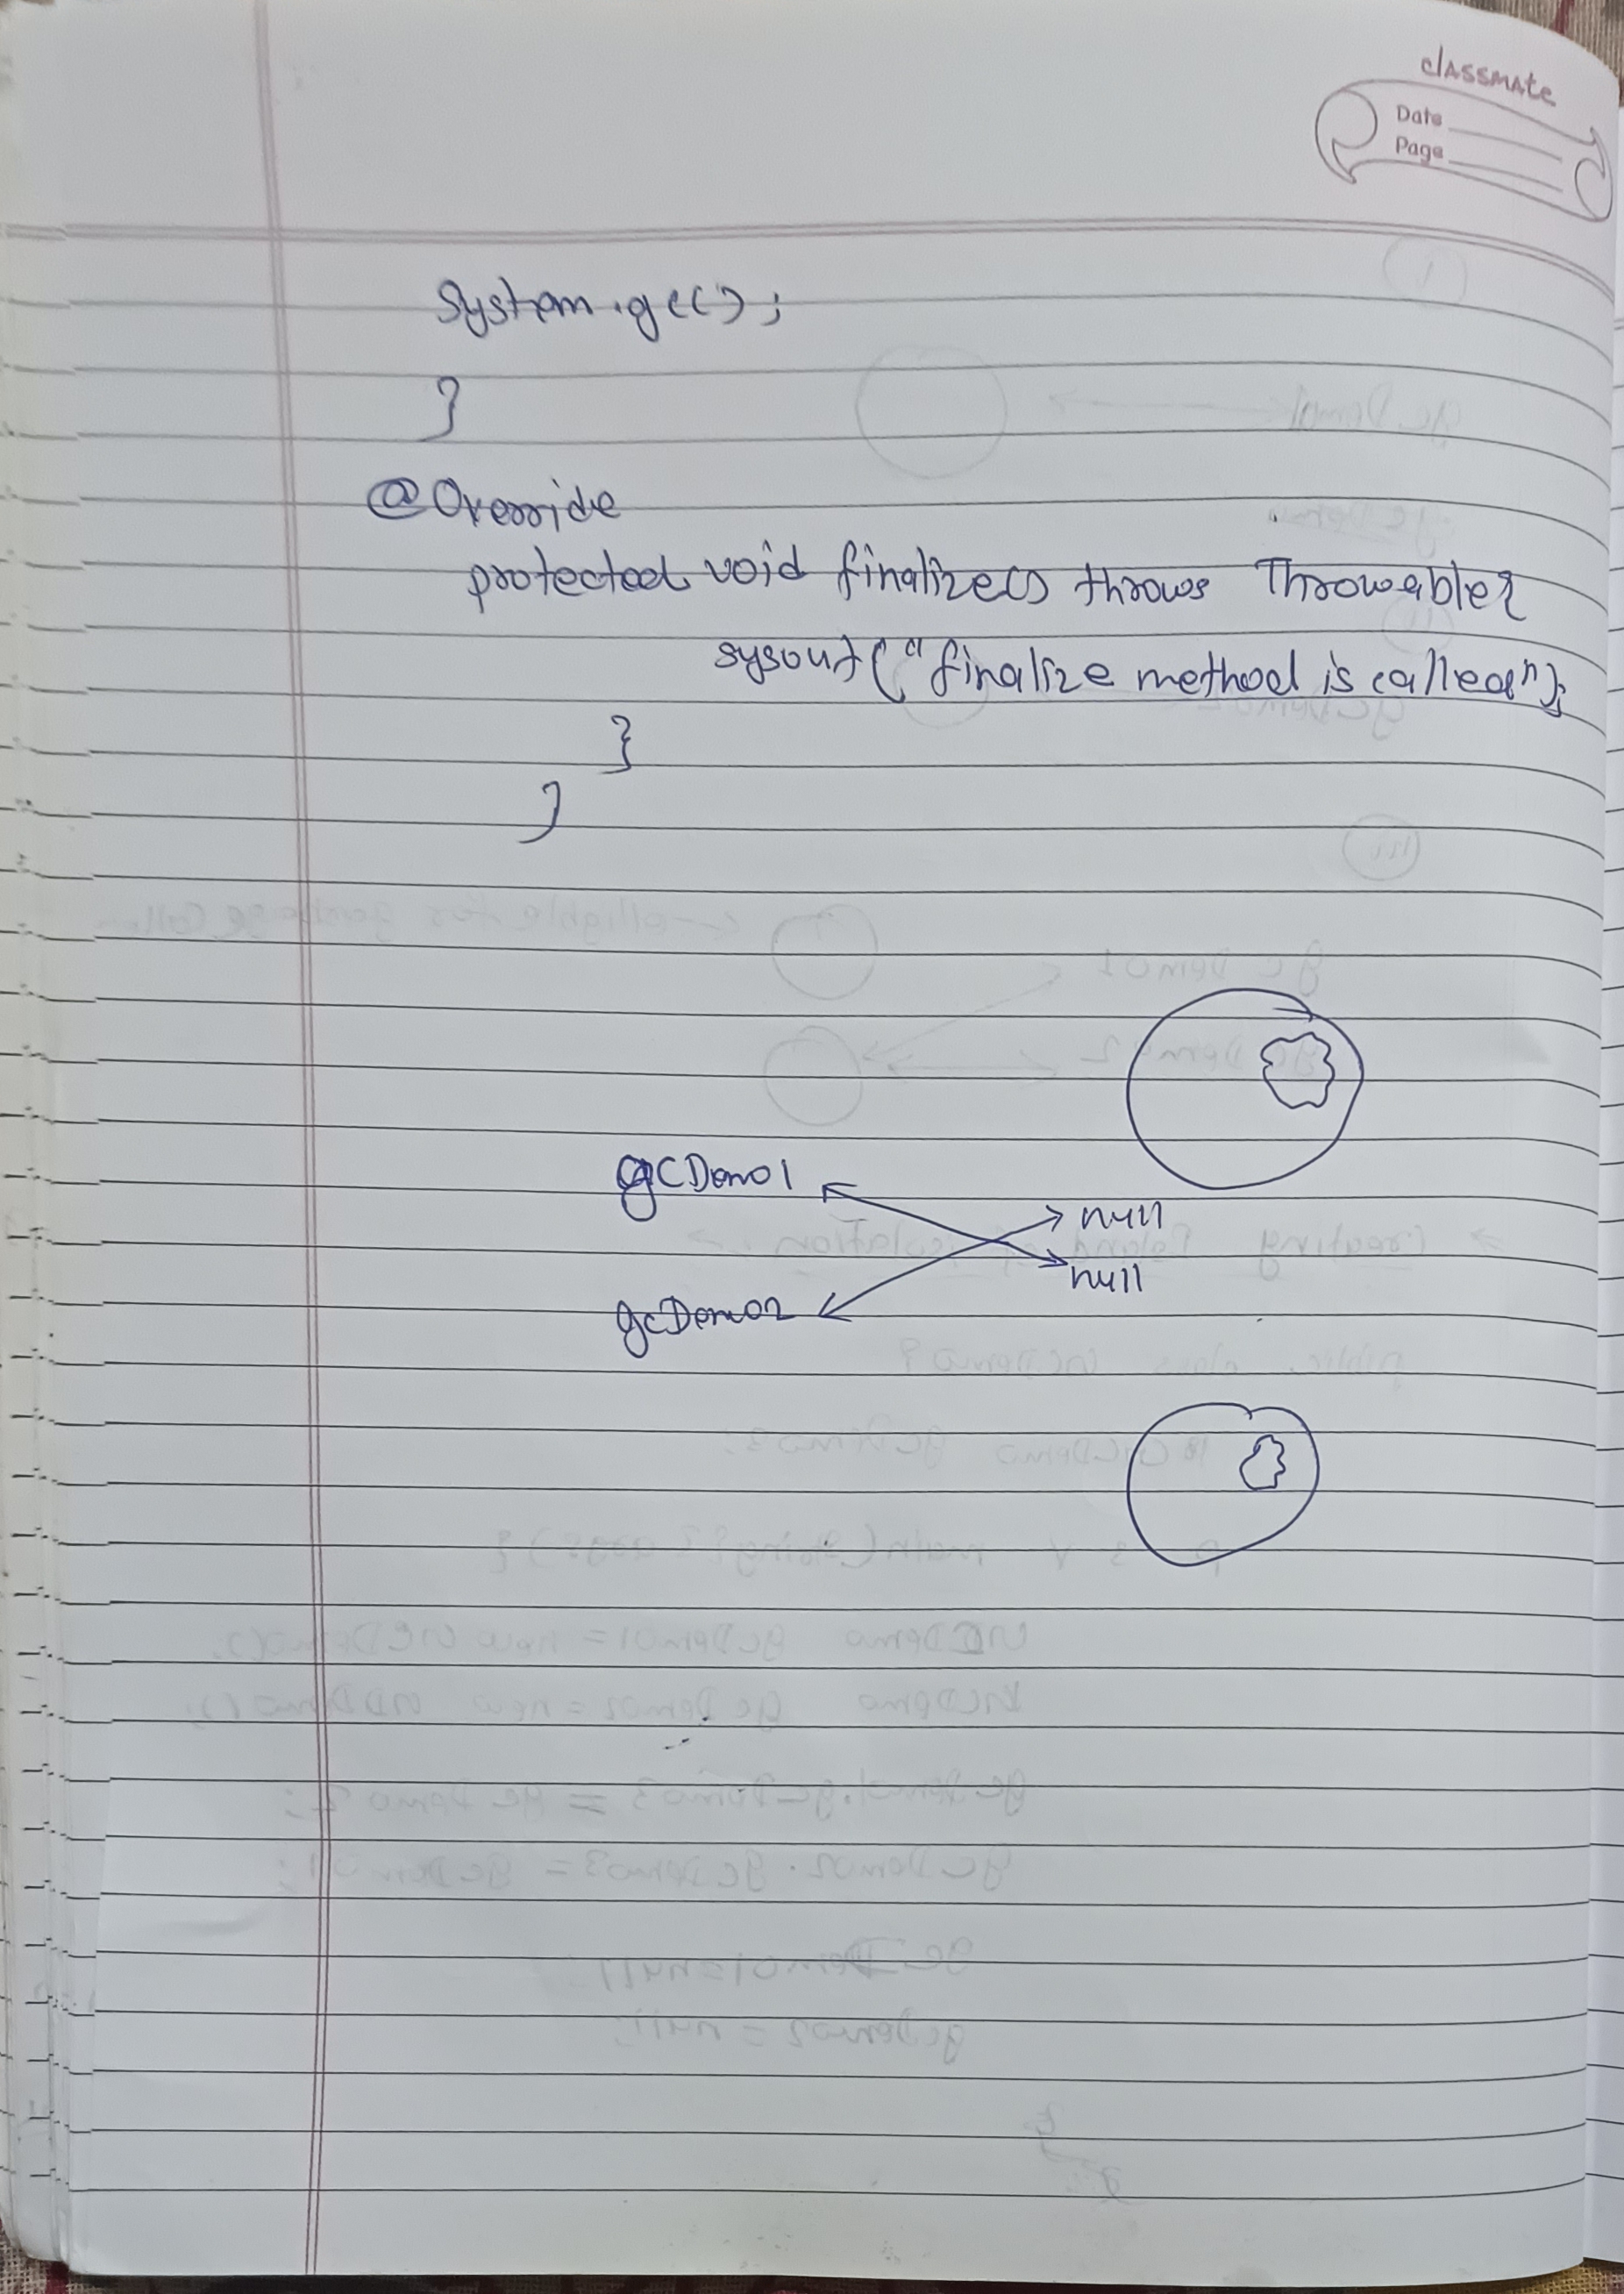 classmate
Date
Page
System.gc();
}
@Override
protected void finalize() throws Throwable{
sysout("finalize method is called");
}
}
gcDemo1
null
null
gcDemo2